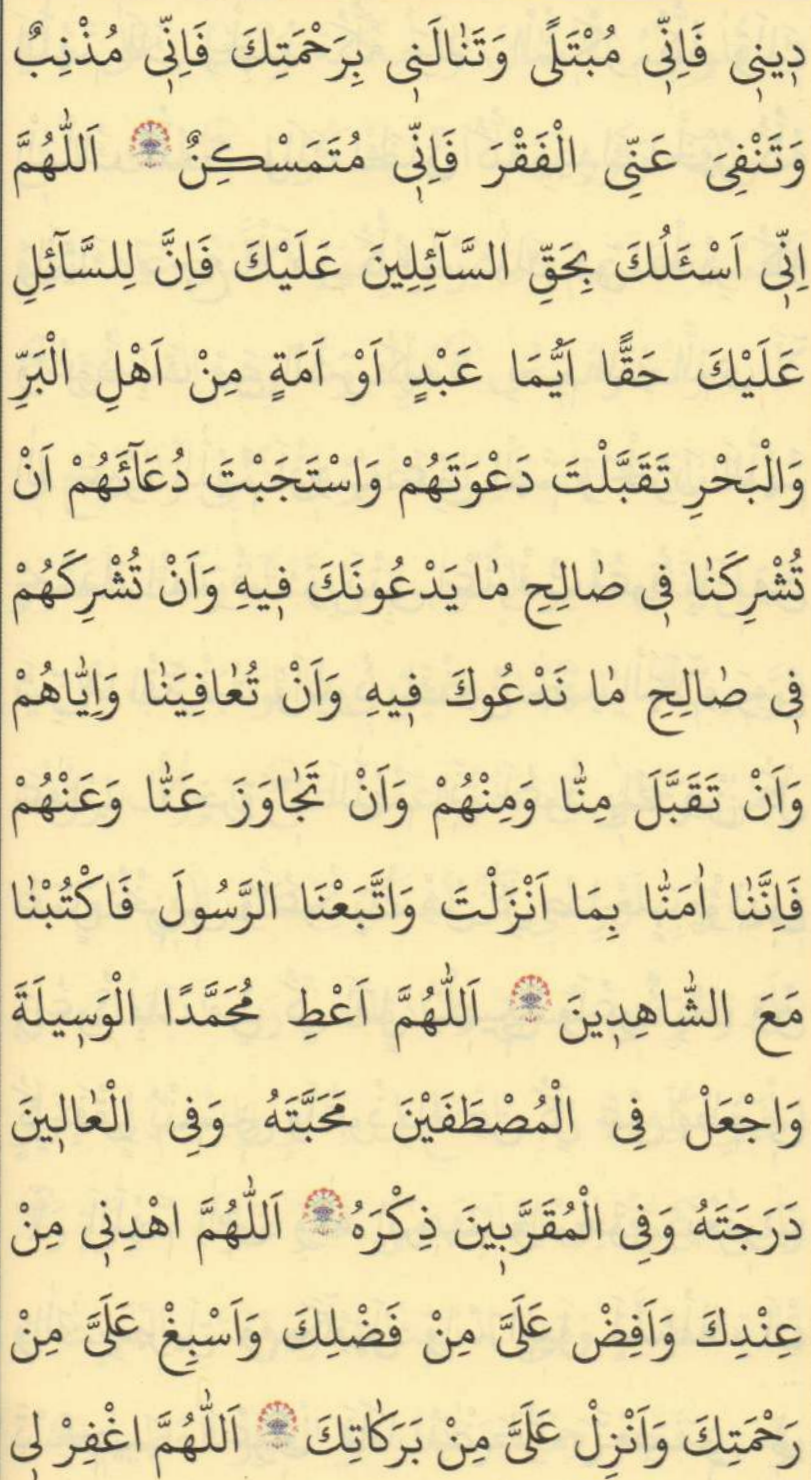 دٖينٖى فَاِنّٖى مُبْتَلًى وَتَنٰالَنٖى بِرَحْمَتِكَ فَاِنّٖى مُذْنِبٌ
وَتَنْفِىَ عَنِّى الْفَقْرَ فَاِنّٖى مُتَمَسْكِنٌ اَللّٰهُمَّ
اِنّٖى اَسْئَلُكَ بِحَقِّ السَّآئِلِينَ عَلَيْكَ فَاِنَّ لِلسَّآئِلِ
عَلَيْكَ حَقًّا اَيُّمَا عَبْدٍ اَوْ اَمَةٍ مِنْ اَهْلِ الْبَرِّ
وَالْبَحْرِ تَقَبَّلْتَ دَعْوَتَهُمْ وَاسْتَجَبْتَ دُعَآئَهُمْ اَنْ
تُشْرِكَنٰا فٖى صٰالِحِ مٰا يَدْعُونَكَ فٖيهِ وَاَنْ تُشْرِكَهُمْ
فٖى صٰالِحِ مٰا نَدْعُوكَ فٖيهِ وَاَنْ تُعٰافِيَنٰا وَاِيّٰاهُمْ
وَاَنْ تَقَبَّلَ مِنّٰا وَمِنْهُمْ وَاَنْ تَجٰاوَزَ عَنّٰا وَعَنْهُمْ
فَاِنَّنٰا اٰمَنّٰا بِمَا اَنْزَلْتَ وَاتَّبَعْنَا الرَّسُولَ فَاكْتُبْنٰا
مَعَ الشّٰاهِدٖينَ اَللّٰهُمَّ اَعْطِ مُحَمَّدًا الْوَسٖيلَةَ
وَاجْعَلْ فِى الْمُصْطَفَيْنَ مَحَبَّتَهُ وَفِى الْعٰالٖينَ
دَرَجَتَهُ وَفِى الْمُقَرَّبٖينَ ذِكْرَهُ اَللّٰهُمَّ اهْدِنٖى مِنْ
عِنْدِكَ وَاَفِضْ عَلَىَّ مِنْ فَضْلِكَ وَاَسْبِغْ عَلَىَّ مِنْ
رَحْمَتِكَ وَاَنْزِلْ عَلَىَّ مِنْ بَرَكٰاتِكَ اَللّٰهُمَّ اغْفِرْ لٖى